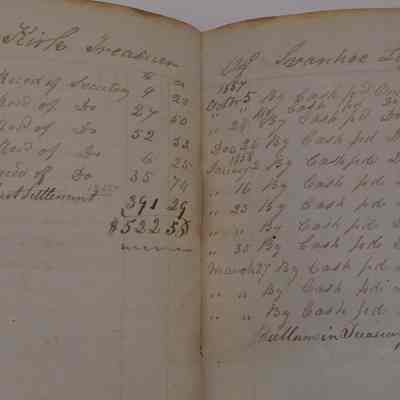 Kirk Treasurer
$ cn
Recvd of Secretary 9 20
Recvd of Do 27 50
Recvd of Do 52 53
Recvd of Do 6 25
Recvd of Do 35 74
last Settlement 391 29
$522 55
Of Ivanhoe
1857
5 By Cash pd
" 28 By Cash pd Do
Dec 26 By Cash pd
1858
January 2 By Cash pd
" 16 By Cash pd
" 23 By Cash pd
" " By Cash pd
" 30 By Cash pd
March 27 By Cash pd
" " By Cash pd
" " By Cash pd
in Treasury